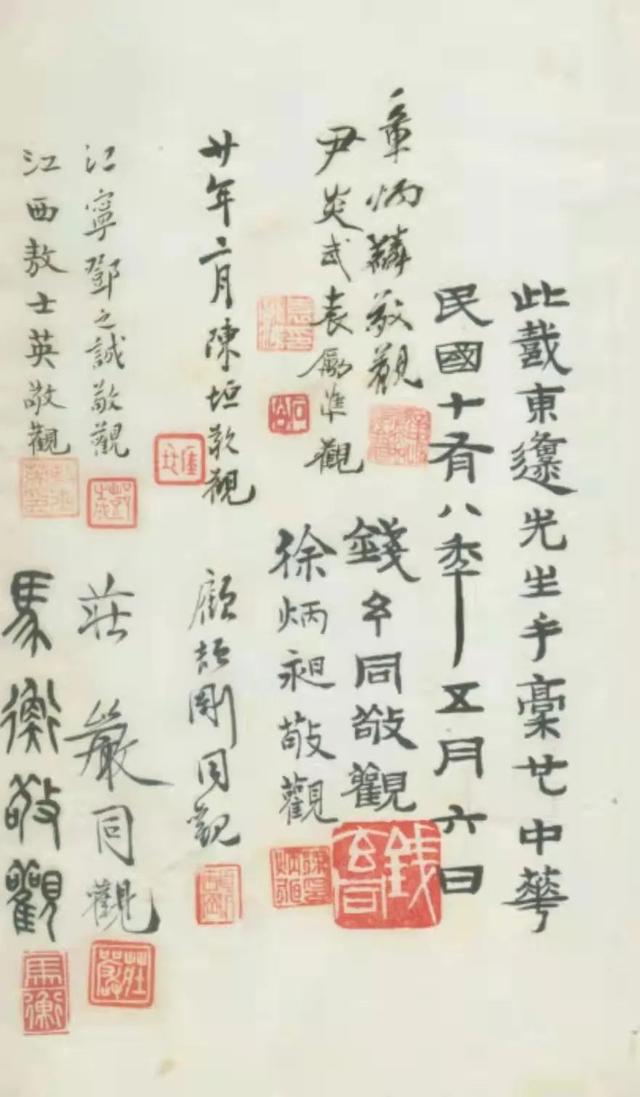 此戴東邍先生手稾也中華
民國十有八秊五月六日
章炳麟敬觀
錢玄同敬觀
錢玄同
尹炎武袁勵準觀
徐炳昶敬觀
廿年二月陳垣敬觀
陳垣
顧頡剛同觀
江寧鄧之誠敬觀
莊嚴同觀
莊嚴
江西敖士英敬觀
馬衡敬觀
馬衡